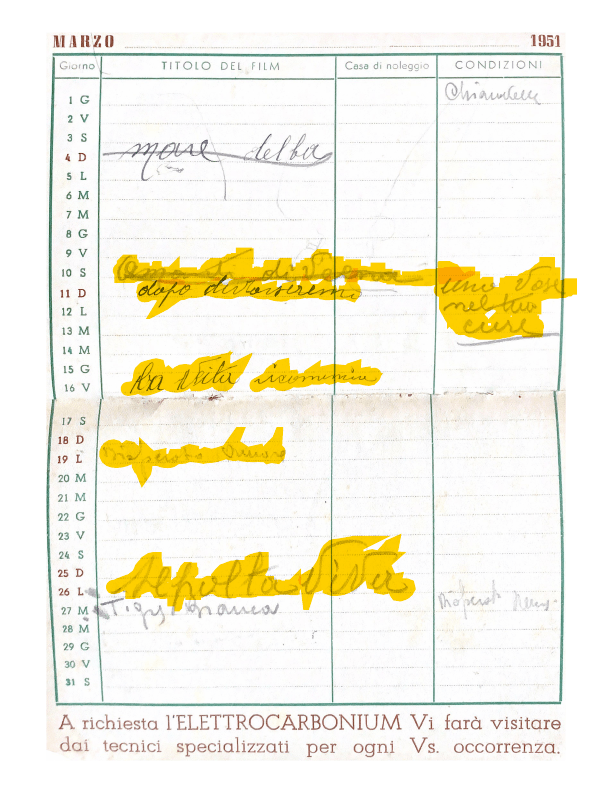 MARZO 1951
Giorno TITOLO DEL FILM Casa di noleggio CONDIZIONI
1 G
2 V
3 S
4 D mare del ba
5 L
6 M
7 M
8 G
9 V
10 S di una voce
11 D dopo divorzieremo nel tuo
12 L cuore
13 M
14 M
15 G
16 V La vita ricomincia
17 S
18 D
19 L Disperato amore
20 M
21 M
22 G
23 V
24 S
25 D Sepolta viva
26 L
27 M Tigre bianca Disperato
28 M
29 G
30 V
31 S
A richiesta l'ELETTROCARBONIUM Vi farà visitare
dai tecnici specializzati per ogni Vs. occorrenza.